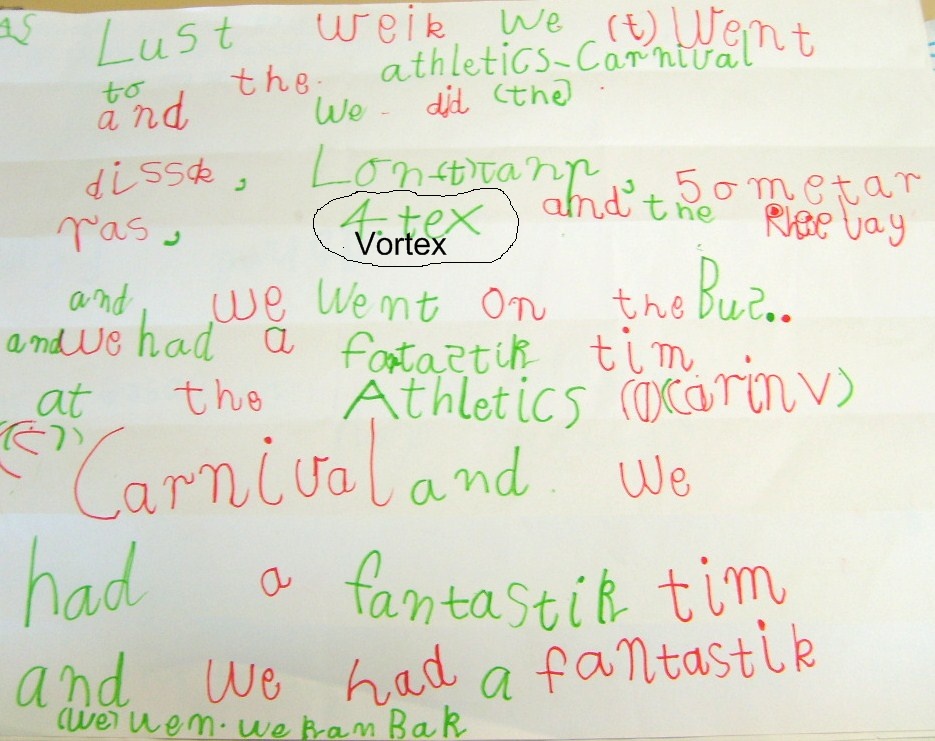 Lust weik we (t) Went
to the. athletics-Carnival
and we did (the)
disse, Lon(t)rann,
ras, 4.tex and the 50metar
Vortex
and we went on the Bus..
and we had a fatastik tim
at the Athletics (I)(carinv)
Carnival and we
had a fantastik tim
and we had a fantastik
(we) wen. we kam Bak